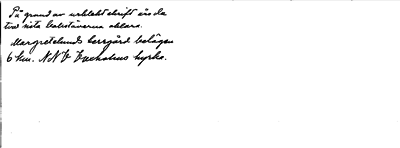 På grund av urblekt skrift äro de
två sista bokstäverna oklara.
Margretelunds herrgård belägen
6 km. NNV Kyrka.